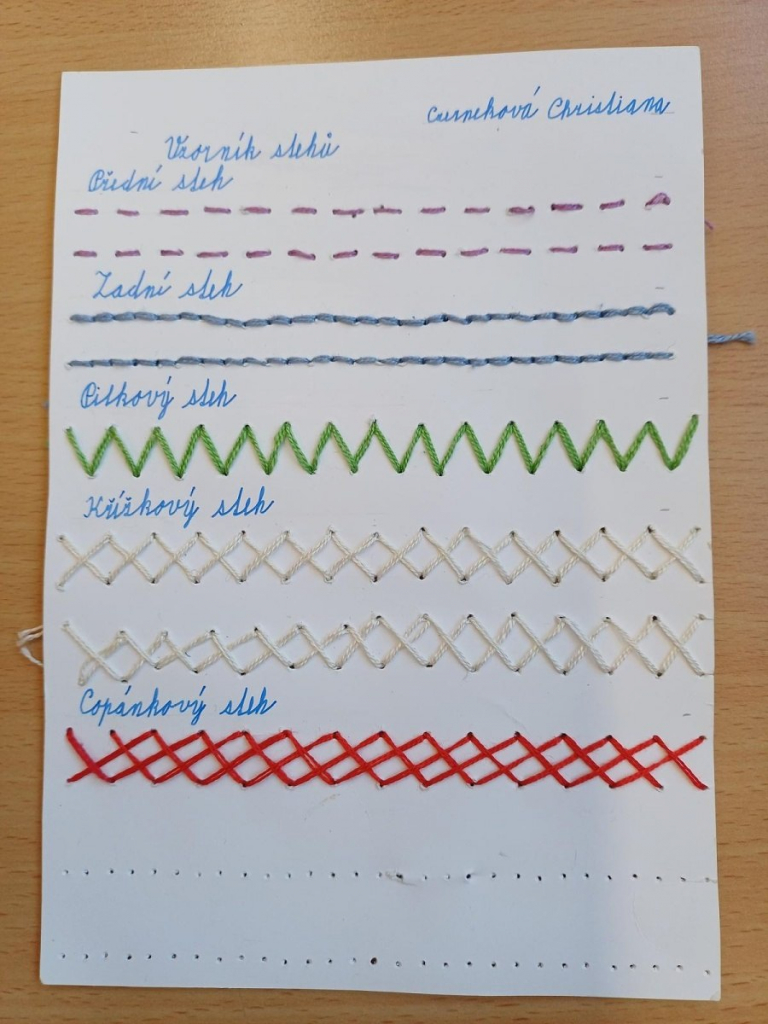 Christiana
Vzorník stehů
Přední steh
Zadní steh
Pitkový steh
Křížkový steh
Copánkový steh